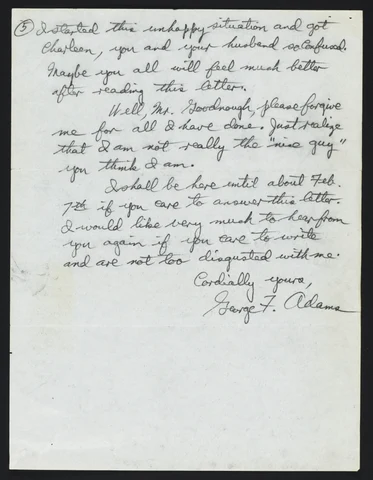 (5) I started this unhappy situation and got
Charleen, you and your husband so confused.
Maybe you all will feel much better
after reading this letter.
Well, Mr. Goodnough, please forgive
me for all I have done. Just realize
that I am not really the "nice guy"
you think I am.
I shall be here until about Feb.
7th if you care to answer this letter.
I would like very much to hear from
you again if you care to write
and are not too disgusted with me.
Cordially yours,
George F. Adams